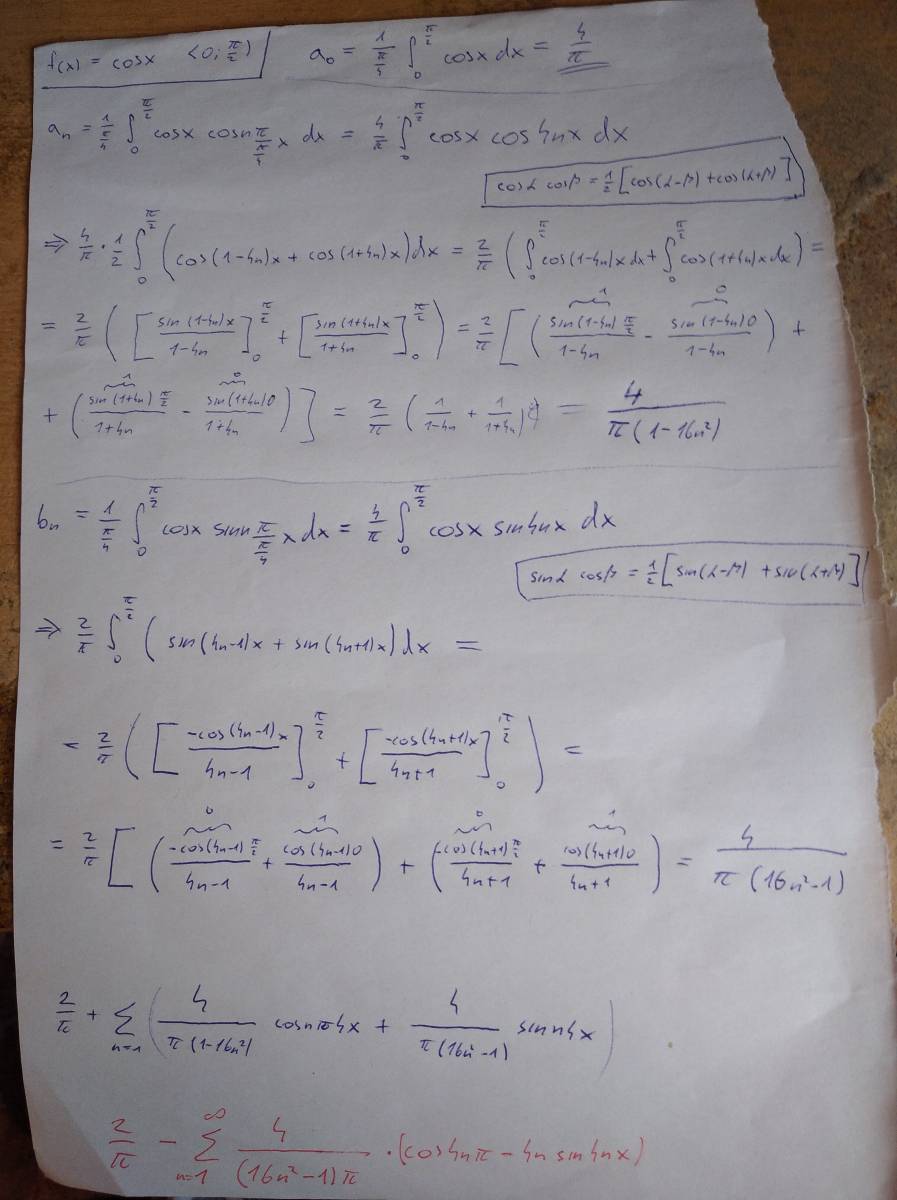 f(x) = cosx <0; π/2)
a₀ = 1/(π/4) ∫₀^(π/2) cosx dx = 4/π
aₙ = 1/(π/4) ∫₀^(π/2) cosx cosn π/(π/4) x dx = 4/π ∫₀^(π/2) cosx cos4nx dx
cosα cosβ = 1/2 [cos(α-β) + cos(α+β)]
⇒ 4/π · 1/2 ∫₀^(π/2) (cos(1-4n)x + cos(1+4n)x) dx = 2/π (∫₀^(π/2) cos(1-4n)x dx + ∫₀^(π/2) cos(1+4n)x dx) =
= 2/π ([sin(1-4n)x/(1-4n)]₀^(π/2) + [sin(1+4n)x/(1+4n)]₀^(π/2)) = 2/π [(sin(1-4n)π/2 /(1-4n) - sin(1-4n)0/(1-4n)) +
+ (sin(1+4n)π/2 /(1+4n) - sin(1+4n)0/(1+4n))] = 2/π (1/(1-4n) + 1/(1+4n)) = 4/(π(1-16n²))
bₙ = 1/(π/4) ∫₀^(π/2) cosx sinn π/(π/4) x dx = 4/π ∫₀^(π/2) cosx sin4nx dx
sinα cosβ = 1/2 [sin(α-β) + sin(α+β)]
⇒ 2/π ∫₀^(π/2) (sin(4n-1)x + sin(4n+1)x) dx =
= 2/π ([-cos(4n-1)x/(4n-1)]₀^(π/2) + [-cos(4n+1)x/(4n+1)]₀^(π/2)) =
= 2/π [(-cos(4n-1)π/2 /(4n-1) + cos(4n-1)0/(4n-1)) + (-cos(4n+1)π/2 /(4n+1) + cos(4n+1)0/(4n+1)) = 4/(π(16n²-1))
2/π + Σₙ₌₁ (4/(π(1-16n²)) cosnπ4x + 4/(π(16n²-1)) sinn4x)
2/π - Σₙ₌₁^∞ 4/((16n²-1)π) · (cos4nπ - 4n sin4nx)